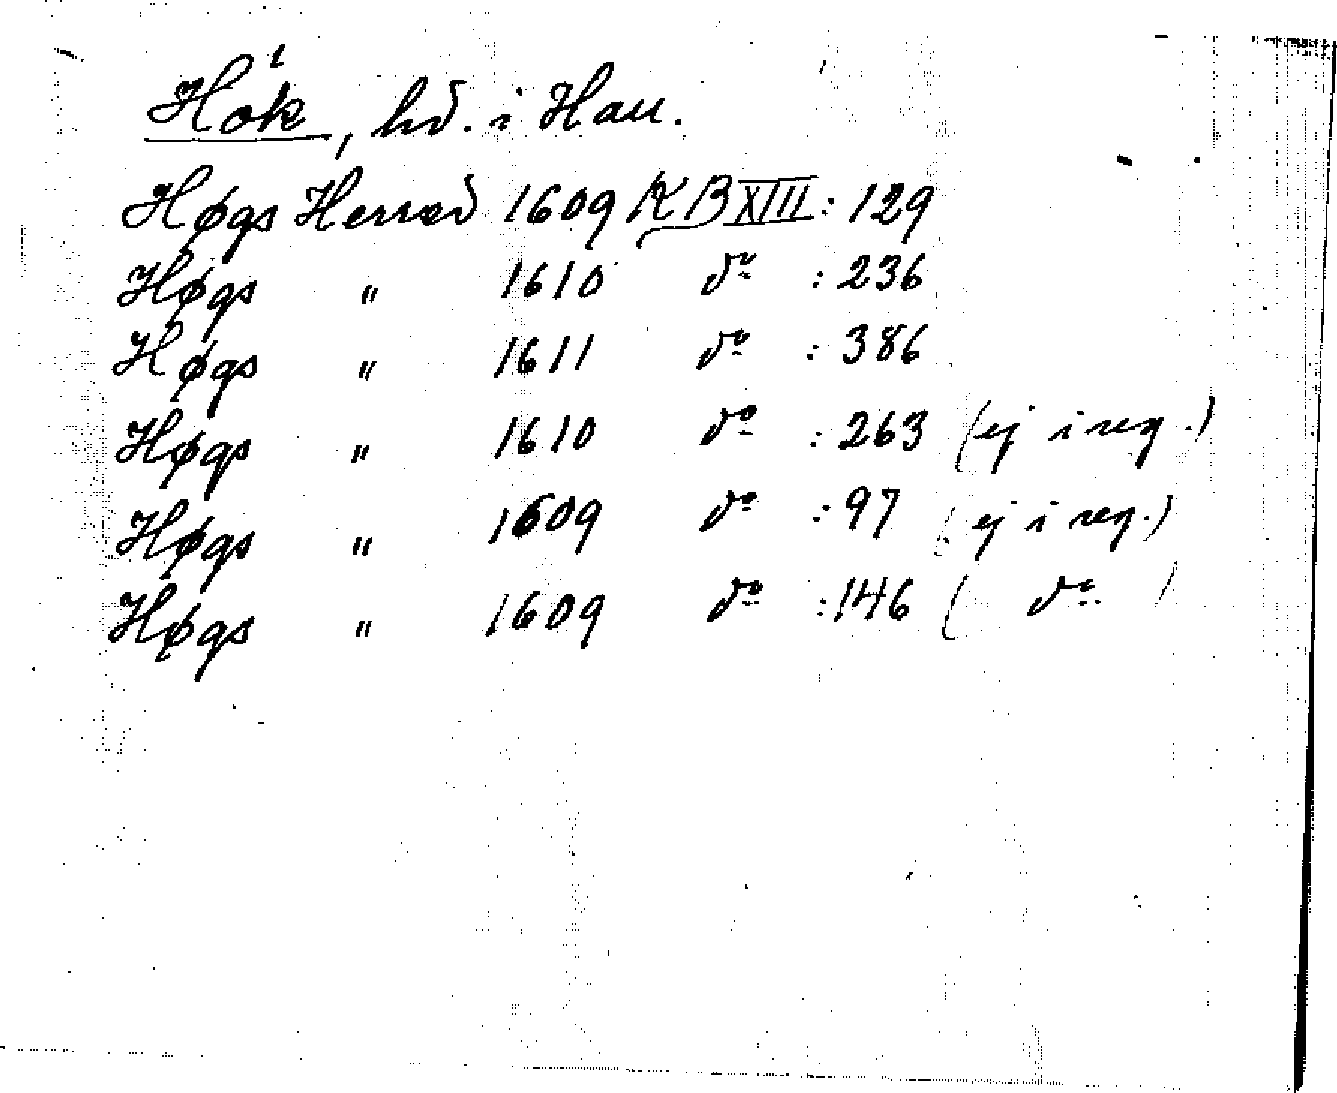 Hók, hd. i Hall.
Høgs Herred 1609 KB XIII : 129
Høgs " 1610 do : 236
Høgs " 1611 do : 386
Høgs " 1610 do : 263 (ej i reg.)
Høgs " 1609 do : 97 (ej i reg.)
Høgs " 1609 do : 146 ( do )